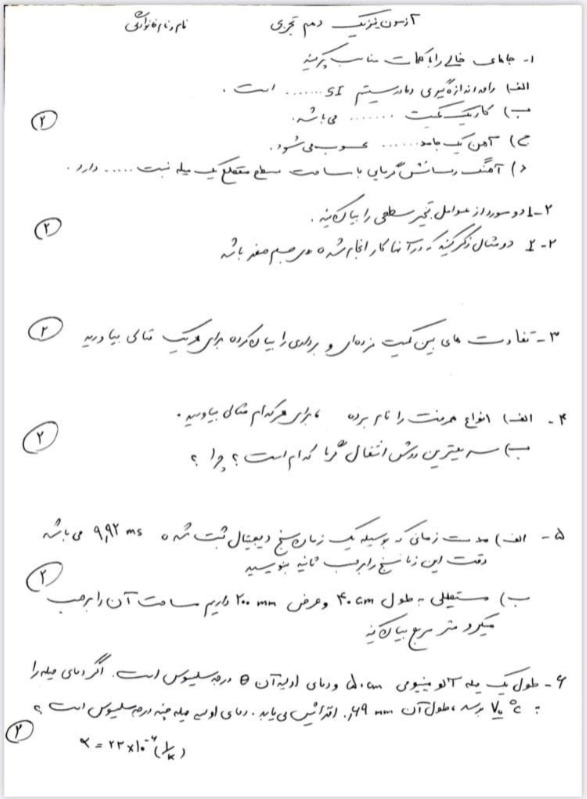 آزمون فیزیک دهم تجربی نام و نام خانوادگی
۱- جاهای خالی را با کلمات مناسب پر کنید
الف) واحد اندازه گیری دما در سیستم SI ....... است .
ب) کار یک کمیت ....... می باشد.
ج) آهن یک جامد ...... محسوب می شود.
د) آهنگ رسانش گرمایی با مساحت سطح مقطع یک میله نسبت ..... دارد .
۲
۲-۱ دو مورد از عوامل تبخیر سطحی را بیان کنید .
۲-۲ دو مثال ذکر کنید که در آنها کار انجام شده روی جسم صفر باشد
۲
۳- تفاوت های بین کمیت نرده ای و برداری را بیان کرده برای هر یک مثالی بیاورید
۲
۴- الف) انواع همرفت را نام برده ، برای هر کدام مثالی بیاورید .
ب) سریعترین روش انتقال گرما کدام است ؟ چرا ؟
۲
۵- الف) مدت زمانی که بوسیله یک زمان سنج دیجیتال ثبت شده ۹,۹۲ ms می باشد
دقت این زمانسنج را برحسب ثانیه بنویسید
ب) مستطیلی به طول ۴۰ cm و عرض ۲۰۰ mm داریم مساحت آن را برحسب
میکرو متر مربع بیان کنید
۲
۶- طول یک میله آلومینیومی ۵۰ cm و دمای اولیه آن θ درجه سلیوس است. اگر دمای میله را
به ۷۰ °C برسد ، طول آن ۰,۶۹ mm افزایش می یابد . دمای اولیه میله چند درجه سلیوس است ؟
α = ۲۳×۱۰⁻⁶ (1/K)
۲